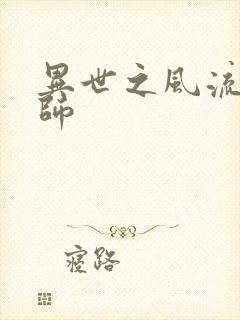 異世之風流
師
寢路